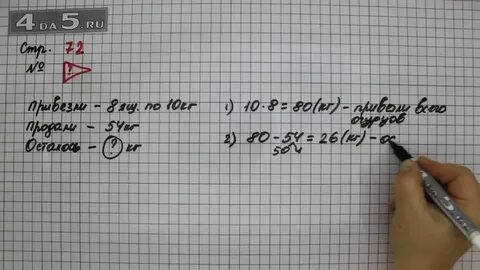 4DA5.RU
Стр. 72
№ ?
Привезли – 8 ящ. по 10 кг
Продали – 54 кг
Осталось – ? кг
1) 10 · 8 = 80 (кг) – привезли всего
огурцов
2) 80 – 54 = 26 (кг) – ос
50 4